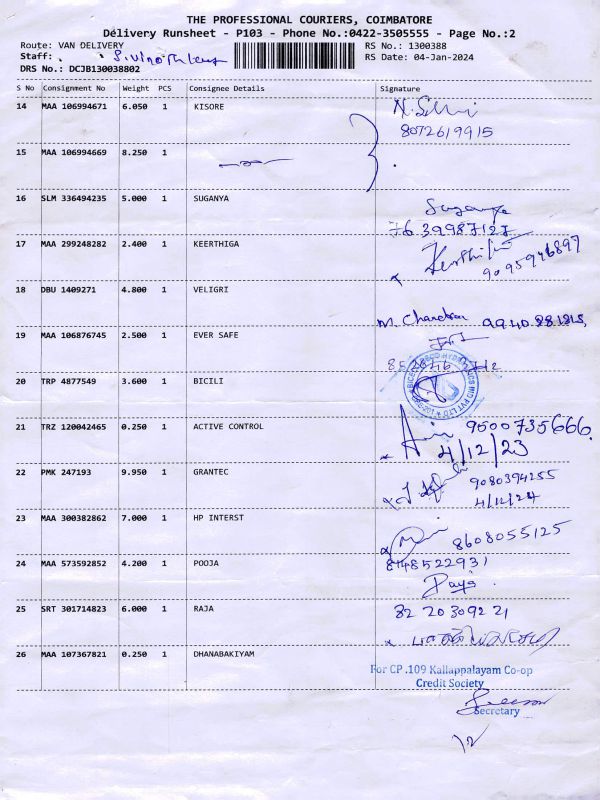 THE PROFESSIONAL COURIERS, COIMBATORE
Delivery Runsheet - P103 - Phone No.:0422-3505555 - Page No.:2
Route: VAN DELIVERY RS No.: 1300388
Staff: RS Date: 04-Jan-2024
DRS No.: DCJB130038802
S No Consignment No Weight PCS Consignee Details Signature
14 MAA 106994671 6.050 1 KISORE
8072619915
15 MAA 106994669 8.250 1
16 SLM 336494235 5.000 1 SUGANYA Suganya
76 39987127
17 MAA 299248282 2.400 1 KEERTHIGA Keerthika
9095946897
18 DBU 1409271 4.800 1 VELIGRI
M. Chandra 9940 881815
19 MAA 106876745 2.500 1 EVER SAFE
20 TRP 4877549 3.600 1 BICILI
21 TRZ 120042465 0.250 1 ACTIVE CONTROL 9500735666
4/12/23
22 PMK 247193 9.950 1 GRANTEC 9080394255
4/12/24
23 MAA 300382862 7.000 1 HP INTERST
8608055125
24 MAA 573592852 4.200 1 POOJA 8148522931
25 SRT 301714823 6.000 1 RAJA 82 20309221
26 MAA 107367821 0.250 1 DHANABAKIYAM
For CP .109 Kallappalayam Co-op
Credit Society
Secretary